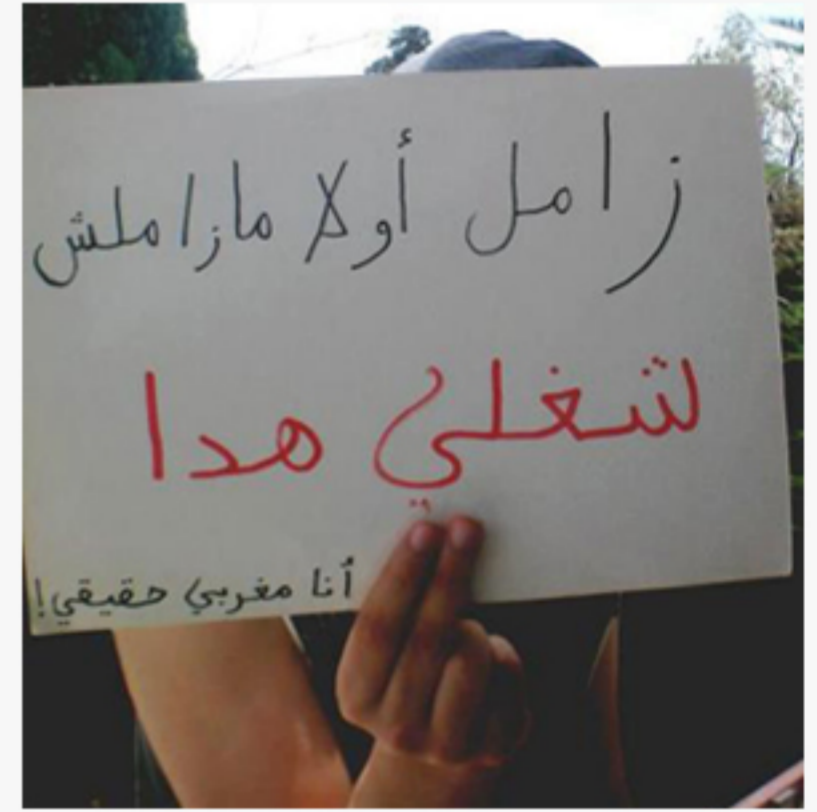 زامل أولا مازاملش
شغلي هدا
أنا مغربي حقيقي!